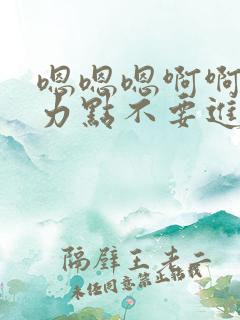 嗯嗯嗯啊啊
力點不要進
隔壁王老二
未任同意禁止轉載